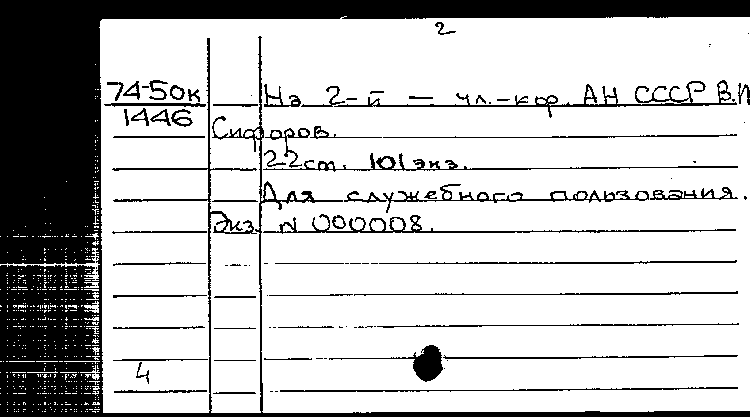 2
74-5ок
1446
На 2-й — чл.-кор. АН СССР В.И
Сифоров.
22ст. 101экз.
Для служебного пользования.
Экз. N 000008.
4